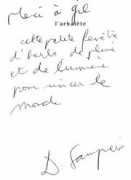 Merci à Gil
l'arbalète
cette petite fenêtre
d'herbe de pluie
et de lumière
pour rincer le
monde
D. Sampiero